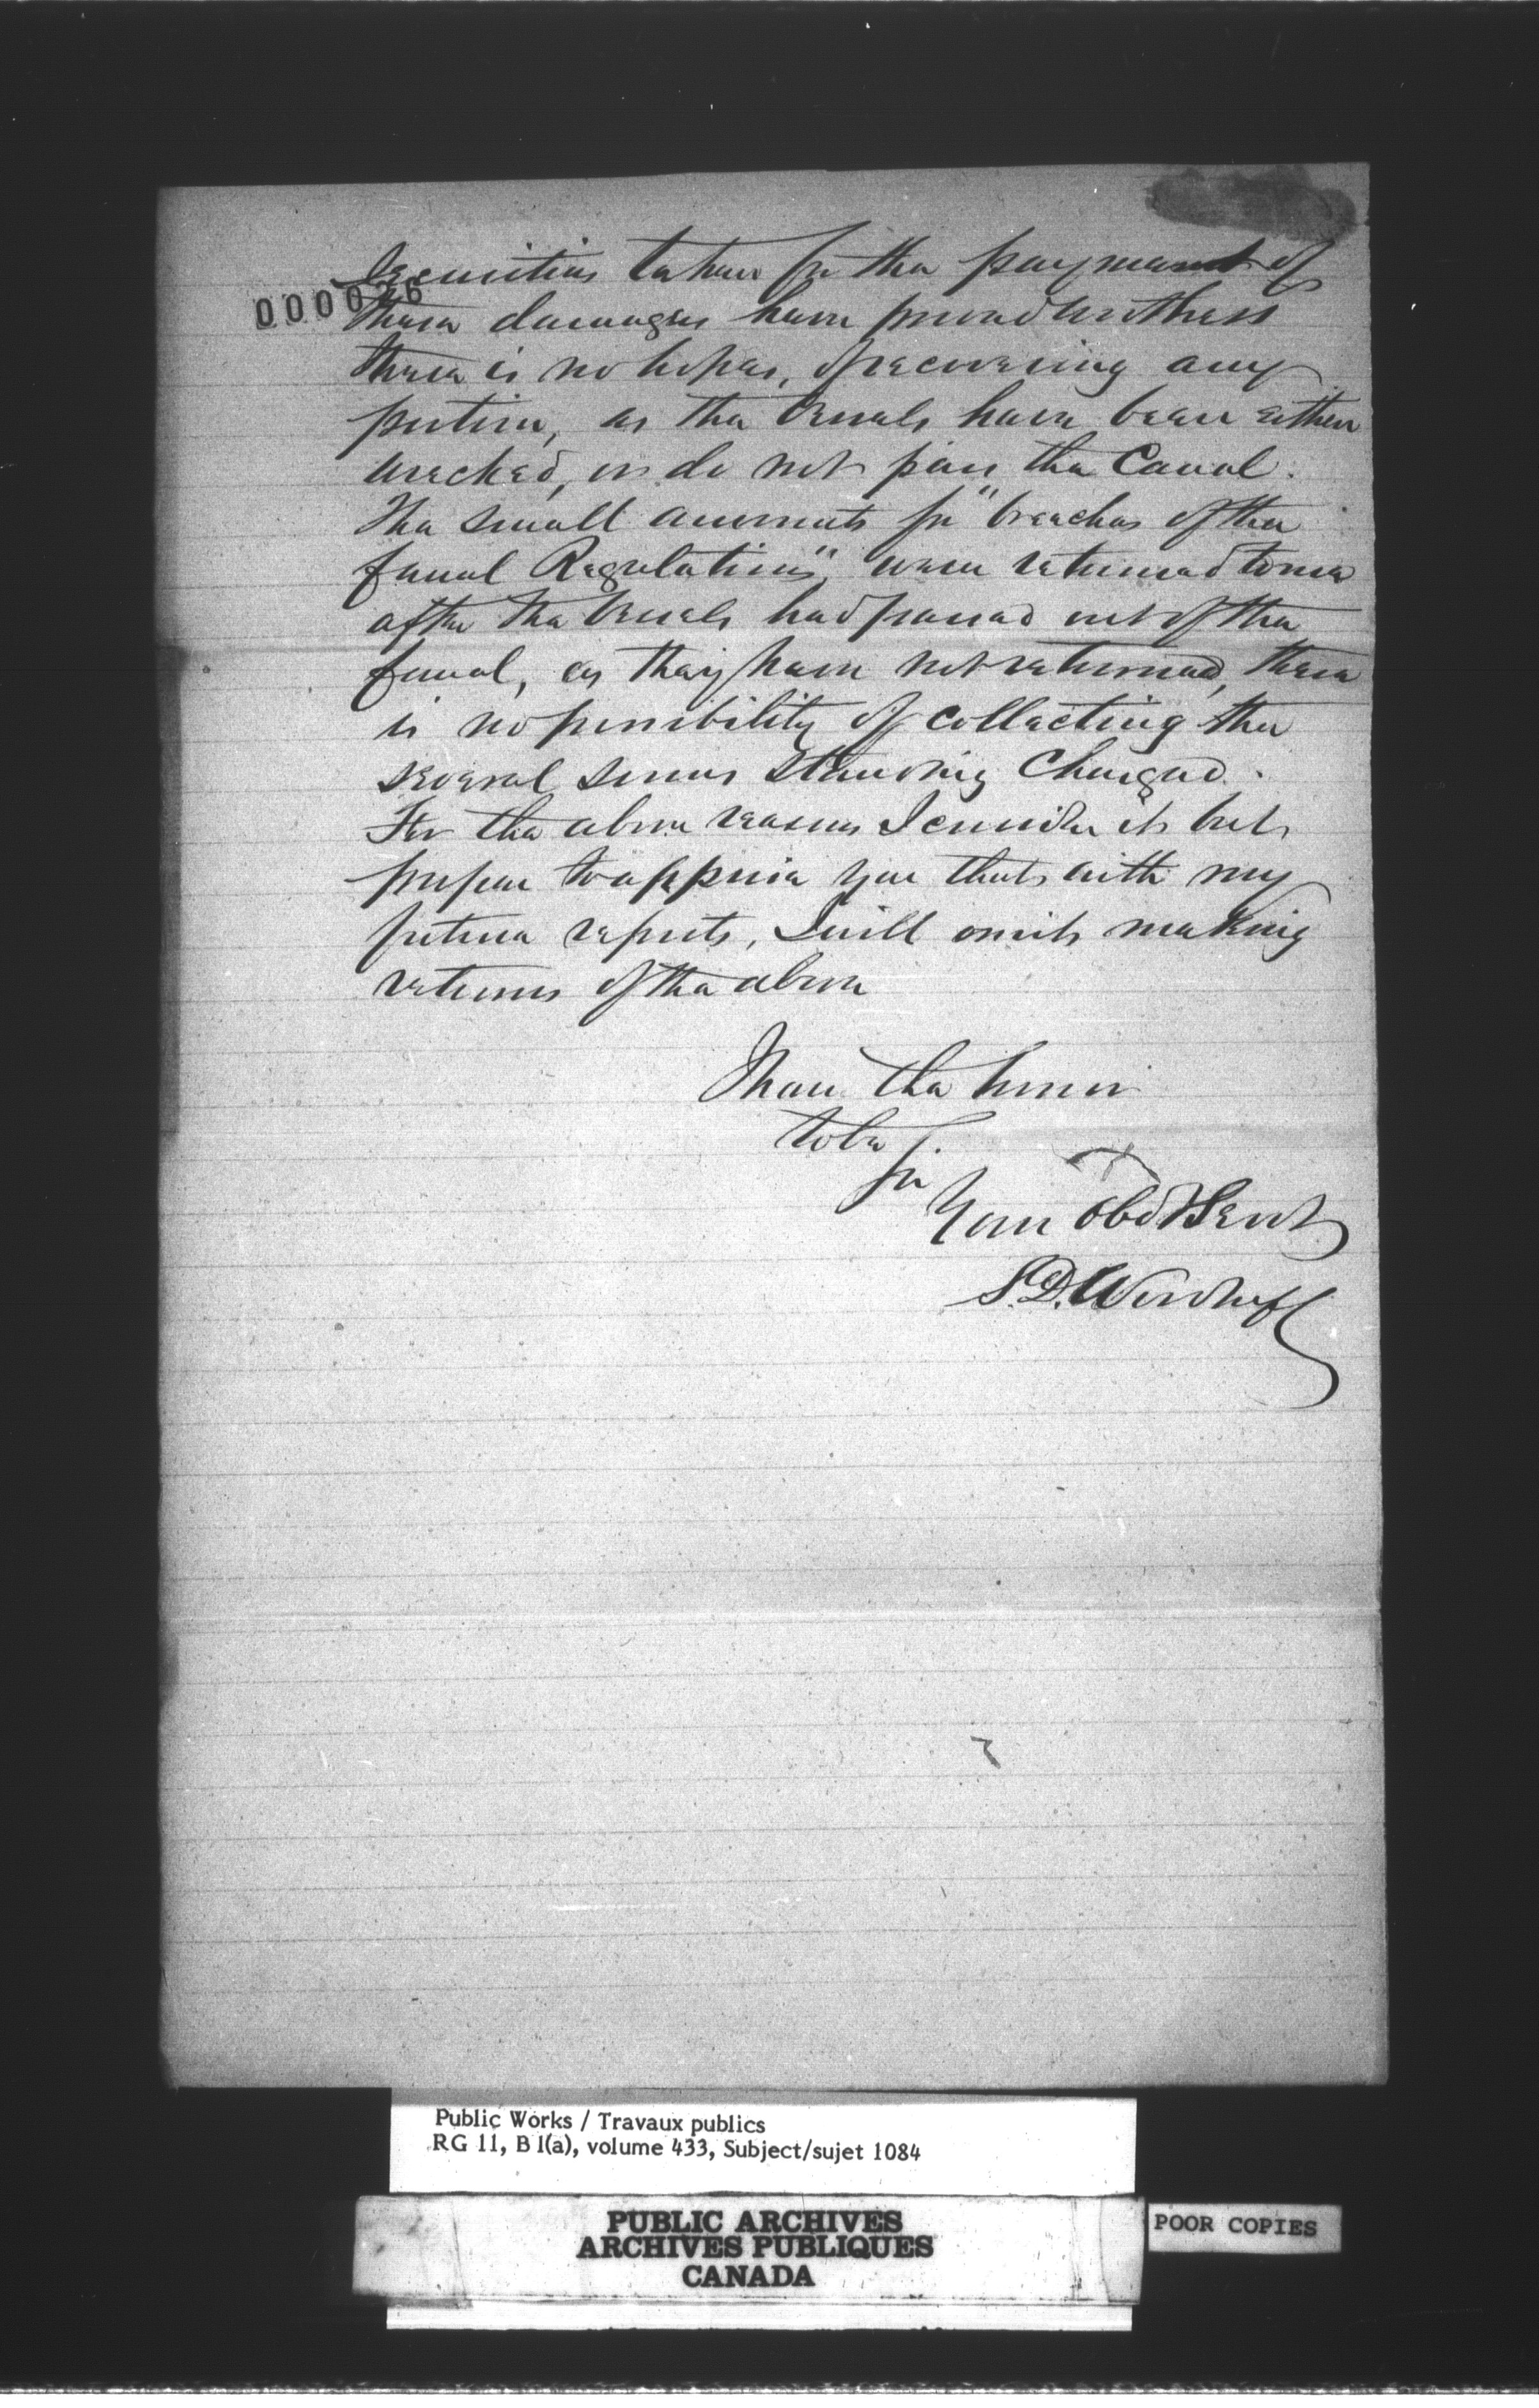 Securities taken for the payment of
000026
these damages have proved worthless
there is no hopes, of recovering any
portion, as the Vessels have been either
wrecked, or do not pass the Canal.
The small amounts for "breaches of the
Canal Regulations" were returned to me
after the Vessels had passed out of the
Canal, as they have not returned, there
is no possibility of collecting the
several sums standing Charged.
For the above reasons I consider it but
proper to apprise you that with my
future reports, I will omit making
returns of the above
I have the honor
to be
Sir
Your Obdt Servt
S. D. Woodruff
Public Works / Travaux publics
RG 11, B 1(a), volume 433, Subject/sujet 1084
PUBLIC ARCHIVES
ARCHIVES PUBLIQUES
CANADA
POOR COPIES